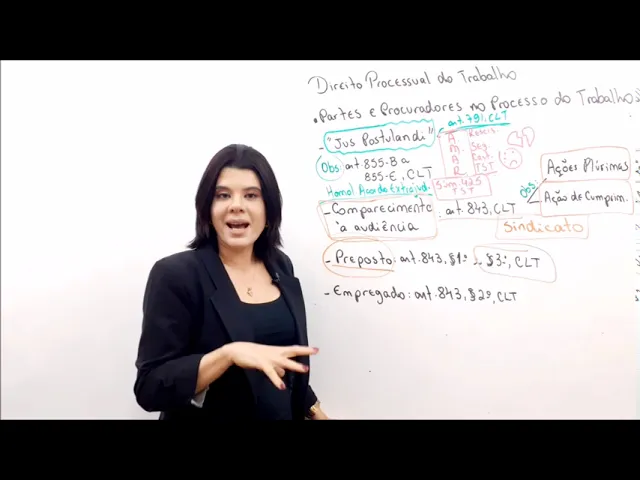 Direito Processual do Trabalho
• Partes e Procuradores no Processo do Trabalho:
- "Jus Postulandi" art. 791, CLT
A Rescis.
M. Seg.
A Caut.
R TST
Súm. 425 TST
Obs art. 855-B a
855-E, CLT
Homol. Acordo Extrajud.
- Comparecimento
à audiência : art. 843, CLT
Obs:
Ações Plúrimas
Ação de Cumprim.
Sindicato
- Preposto : art. 843, §1º - §3º, CLT
- Empregado : art. 843, §2º, CLT